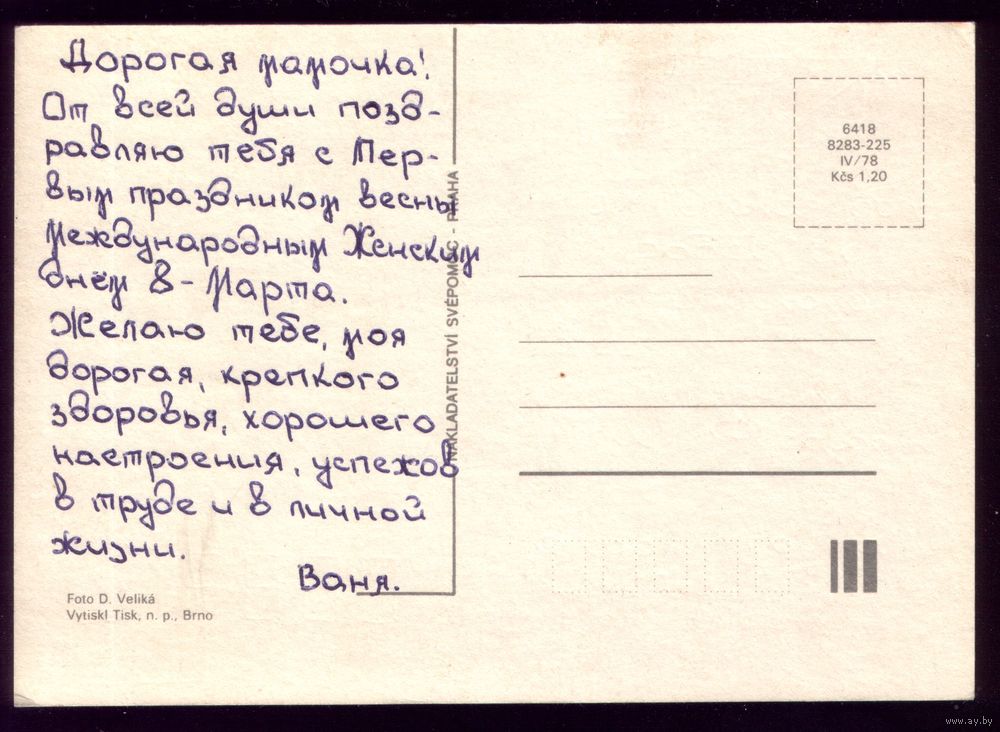 Дорогая мамочка!
От всей души позд-
равляю тебя с Пер-
вым праздником весны
Международным Женским
днём 8 - Марта.
Желаю тебе, моя
дорогая, крепкого
здоровья, хорошего
настроения, успехов
в труде и в личной
жизни.
Ваня.
Foto D. Veliká
Vytiskl Tisk, n. p., Brno
NAKLADATELSTVÍ SVÉPOMOC - PRAHA
6418
8283-225
IV/78
Kčs 1,20
www.ay.by